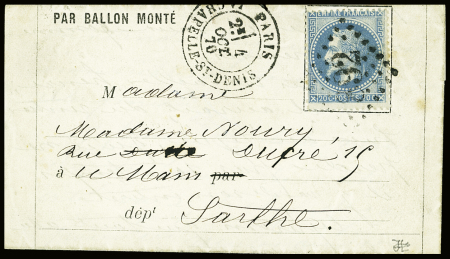 PAR BALLON MONTÉ
PARIS
LA CHAPELLE-ST-DENIS
2E
4
OCT
70
32
20 C POSTES 20 C
Madame
Madame Noury
Rue Dupré 19
à u Mans par
dépt Sarthe.